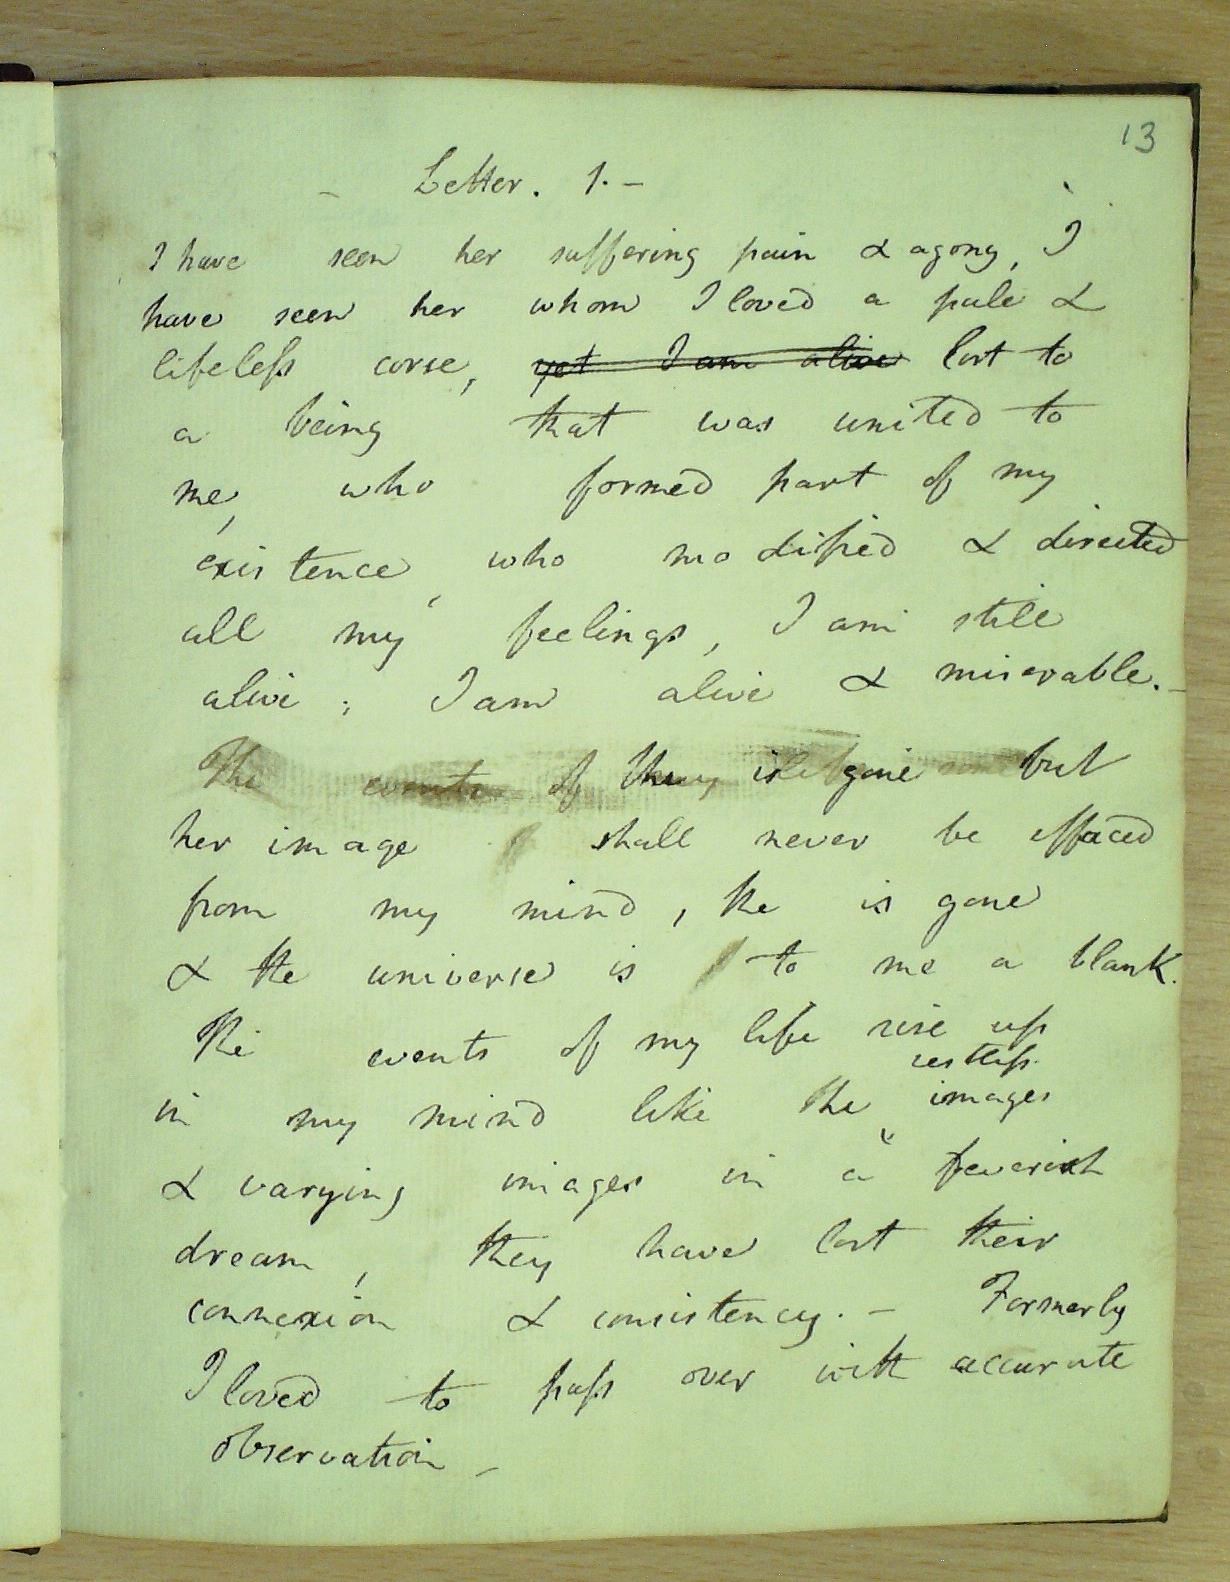 13
- Letter. 1. -
I have seen her suffering pain & agony, I
have seen her whom I loved a pale &
lifeless corse, yet I am alive lost to
a being that was united to
me, who formed part of my
existence, who modified & directed
all my feelings, I am still
alive; I am alive & miserable. -
The events of is gone but
her image shall never be effaced
from my mind, she is gone
& the universe is to me a blank.
The events of my life rise up
restless
in my mind like the images
& varying images in a feverish
dream, they have lost their
connexion & consistency. - Formerly
I loved to pass over with accurate
observation -